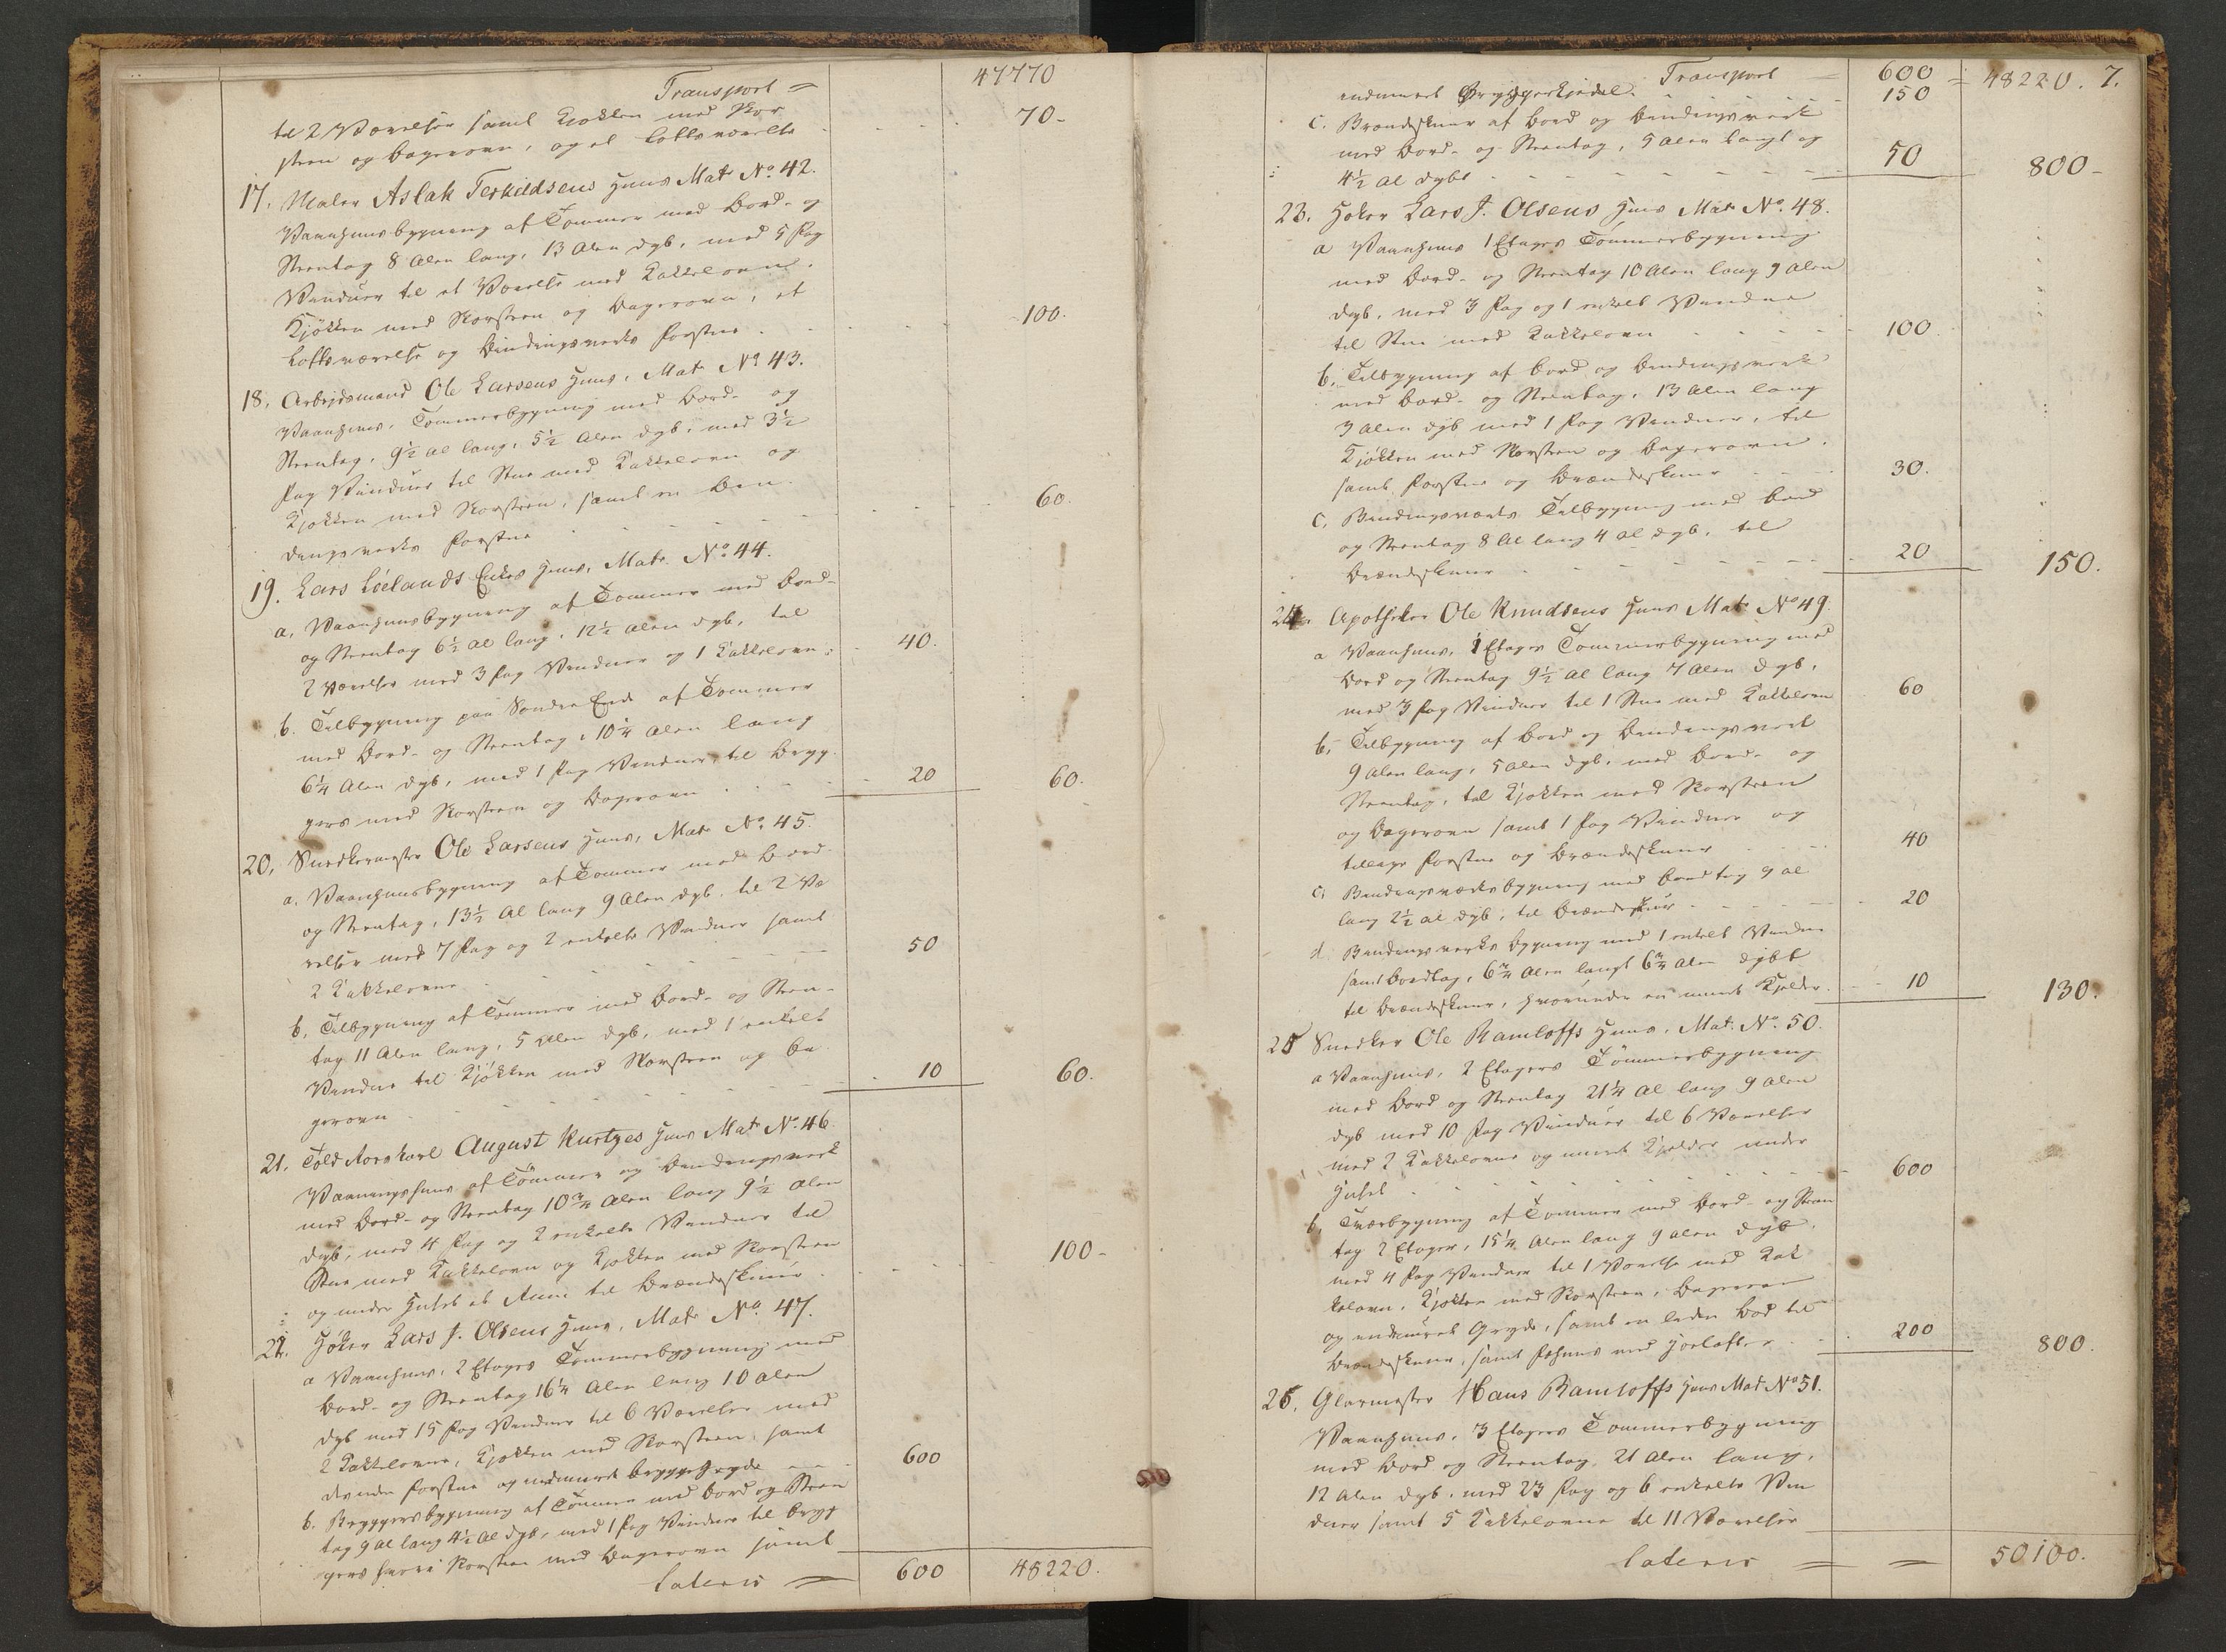 Transport = 47770
til 2 Værelser samt Kjøkken med Skor
steen og Bagerovn, og et Loftsværelse 70-
17. Maler Aslak Terkildsens Huus Mat No. 42.
Vaanhuusbygning af Tømmer med Bord- og
Steentag 8 Alen lang, 13 Alen dyb, med 5 Fag
Vinduer til et Værelse med Kakkelovn.
Kjøkken med Skorsteen og Bagerovn, et
Loftsværelse og Bindingsverks Forstue 100.
18. Arbeidsmand Ole Larsens Huus, Mat No 43.
Vaanhuus, Tømmerbygning med Bord- og
Steentag, 9½ Al lang, 5½ Alen dyb, med 3½
Fag Vinduer til Stue med Kakkelovn og
Kjøkken med Skorsteen, samt en Bin
dingsverks Forstue 60.
19. Lars Lielands Enkes Huus, Mat No. 44.
a. Vaanhuusbygning af Tømmer med Bord-
og Steentag 6½ Al lang, 12½ Alen dyb, til
2 Værelser med 3 Fag Vinduer og 1 Kakkelovn 40.
b. Tilbygning paa Søndre Ende af Tømmer
med Bord- og Steentag, 10¼ Alen lang
6¼ Alen dyb, med 1 Fag Vinduer, til Bryg
gers med Skorsteen og Bagerovn 20 60.
20. Snedkermester Ole Larsens Huus, Mat No. 45.
a. Vaanhuusbygning af Tømmer med Bord-
og Steentag, 13½ Al lang 9 Alen dyb, til 2 Væ
relser med 7 Fag og 2 enkelte Vinduer samt
2 Kakkelovne 50
b. Tilbygning af Tømmer med Bord- og Steen-
tag 11 Alen lang, 5 Alen dyb, med 1 enkelt
Vindue til Kjøkken med Skorsteen og Ba
gerovn 10 60.
21. Told Rorskarl August Kurtzes Huus Mat No. 46
Vaaningshuus af Tømmer og Bindingsverk
med Bord- og Steentag 10¾ Alen lang 9½ Alen
dyb, med 4 Fag og 2 enkelte Vinduer til
Stue med Kakkelovn og Kjøkken med Skorsteen
og under Huset et Rum til Brændeskuur 100-
22. Høker Lars J. Olsens Huus, Mat No. 47.
a Vaanhuus, 2 Etages Tømmerbygning med
Bord- og Steentag 16¼ Alen lang 10 Alen
dyb med 15 Fag Vinduer til 6 Værelser med
2 Kakkelovne, Kjøkken med Skorsteen, samt
Forstue og indmuret Bryggegryde 600
b. Bryggersbygning af Tømmer med Bord og Steen
tag 9 Al lang 4½ Al dyb, med 1 Fag Vinduer til Bryg
gers hvori Skorsteen med Bagerovn samt
Lateris = 600 48220.
Transport = 600 = 48220. 7.
indmuret Bryggerkjedel. 150
c. Brændeskuur af Bord og Bindingsverk
med Bord- og Steentag, 5 Alen langt og
4½ Al dybt 50 800-
23. Høker Lars J. Olsens Huus Mat No. 48.
a Vaanhuus 1 Etages Tømmerbygning
med Bord- og Steentag 10 Alen lang 9 Alen
dyb, med 3 Fag og 1 enkelt Vindue
til Stue med Kakkelovn 100
b. Tilbygning af Bord og Bindingsverk
med Bord- og Steentag, 13 Alen lang
3 Alen dyb med 1 Fag Vinduer, til
Kjøkken med Skorsteen og Bagerovn.
samt Forstue og Brændeskuur 30.
c. Bindingsværks Tilbygning med Bord
og Steentag 8 Al lang 4 Al dyb, til
Brændeskuur 20 150.
24. Apotheker Ole Knudsens Huus Mat No 49.
a Vaanhuus, 1 Etages Tømmerbygning med
Bord og Steentag 9½ Al lang 7 Alen dyb,
med 3 Fag Vinduer til 1 Stue med Kakkelovn 60
b. Tilbygning af Bord og Bindingsverk
9 Alen lang, 5 Alen dyb, med Bord- og
Steentag, til Kjøkken med Skorsteen
og Bagerovn samt 1 Fag Vinduer og
tillige Forstue og Brændeskuur 40
c. Bindingsværksbygning med Bordtag 9 Al
lang 2½ Al dyb, til Brændeskuur 20
d. Bindingsverks Bygning med 1 enkelt Vindue
samt Bordtag, 6¾ Alen langt 6¾ Alen dybt
til Brændeskuur, hvorunder en muret Kjelder 10 130.
25 Snedker Ole Ramloffs Huus, Mat. No. 50.
a Vaanhuus, 2 Etagers Tømmerbygning
med Bord og Steentag 21¼ Al lang 9 Alen
dyb med 10 Fag Vinduer til 6 Værelser
med 2 Kakkelovne og muret Kjelder under
Huset 600
b. Tværbygning af Tømmer med Bord- og Steen
tag 2 Etager, 15¼ Alen lang 9 Alen dyb
med 4 Fag Vinduer til 1 Værelse med Kak
kelovn, Kjøkken med Skorsteen, Bagerovn
og indmuret Gryde, samt en liden Bod til
Brændeskuur, samt Fæhuus med Høeloft 200 800.
26. Glarmester Hans Ramloffs Huus Mat No 51.
Vaanhuus, 3 Etagers Tømmerbygning
med Bord og Steentag, 21 Alen lang,
12 Alen dyb, med 23 Fag og 6 enkelte Vin
duer samt 5 Kakkelovne til 11 Værelser
Lateris = = 50100.